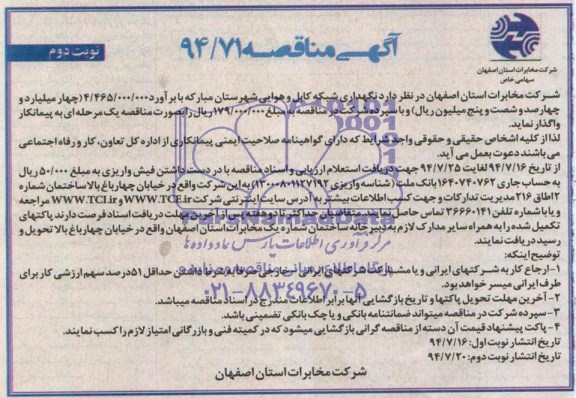 شرکت مخابرات استان اصفهان
سهامی خاص
آگهی مناقصه ۹۴/۷۱
نوبت دوم
شرکت مخابرات استان اصفهان در نظر دارد نگهداری شبکه کابل و هوایی شهرستان مبارکه با برآورد ۴/۴۶۵/۰۰۰/۰۰۰ (چهار میلیارد و
چهارصد و شصت و پنج میلیون ریال) و با سپرده شرکت در مناقصه به مبلغ ۱۷۹/۰۰۰/۰۰۰ ریال را بصورت مناقصه یک مرحله ای به پیمانکار
واگذار نماید.
لذا از کلیه اشخاص حقیقی و حقوقی واجد شرایط که دارای گواهینامه صلاحیت ایمنی پیمانکاری از اداره کل تعاون، کار و رفاه اجتماعی
می باشند دعوت بعمل می آید.
از تاریخ ۹۴/۷/۱۶ لغایت ۹۴/۷/۲۵ جهت دریافت استعلام ارزیابی و اسناد مناقصه با در دست داشتن فیش واریزی به مبلغ ۵۰/۰۰۰ ریال
به حساب جاری ۱۶۴۰۷۴۰۷۶۲ بانک ملت (شناسه واریزی ۱۳۰۰۰۸۰۱۱۲۷۱۹۲) به این شرکت واقع در خیابان چهارباغ بالا ساختمان شماره
۲ اطاق ۲۱۶ مدیریت تدارکات و جهت کسب اطلاعات بیشتر به آدرس سایت اینترنتی شرکت WWW.TCI.ir و WWW.TCI.ir مراجعه
و یا با شماره تلفن ۳۶۶۶۰۱۴۱ تماس حاصل نمایند. متقاضیان حداکثر تا دو هفته پس از آخرین مهلت دریافت اسناد فرصت دارند پاکتهای
تکمیل شده را به همراه سایر مدارک لازم به دبیرخانه ساختمان شماره یک مخابرات استان اصفهان واقع در خیابان چهارباغ بالا تحویل و
رسید دریافت نمایند.
توضیح اینکه:
۱- ارجاع کار به شرکتهای ایرانی و یا مشارکت شرکتهای ایرانی - خارجی صرفا به شرط داشتن حداقل ۵۱ درصد سهم ارزشی کار برای
طرف ایرانی میسر خواهد بود.
۲- آخرین مهلت تحویل پاکتها و تاریخ بازگشایی آنها برابر اطلاعات مندرج در اسناد مناقصه میباشد.
۳- سپرده شرکت در مناقصه میتواند ضمانتنامه بانکی و یا چک بانکی تضمینی باشد.
۴- پاکت پیشنهاد قیمت آن دسته از مناقصه گرانی بازگشایی میشود که در کمیته فنی و بازرگانی امتیاز لازم را کسب نمایند.
تاریخ انتشار نوبت اول: ۹۴/۷/۱۶
تاریخ انتشار نوبت دوم: ۹۴/۷/۲۰
شرکت مخابرات استان اصفهان
مرکز فرآوری اطلاعات پارس نماد داده ها
۰۲۱-۸۸۳۴۹۶۷۰-۵